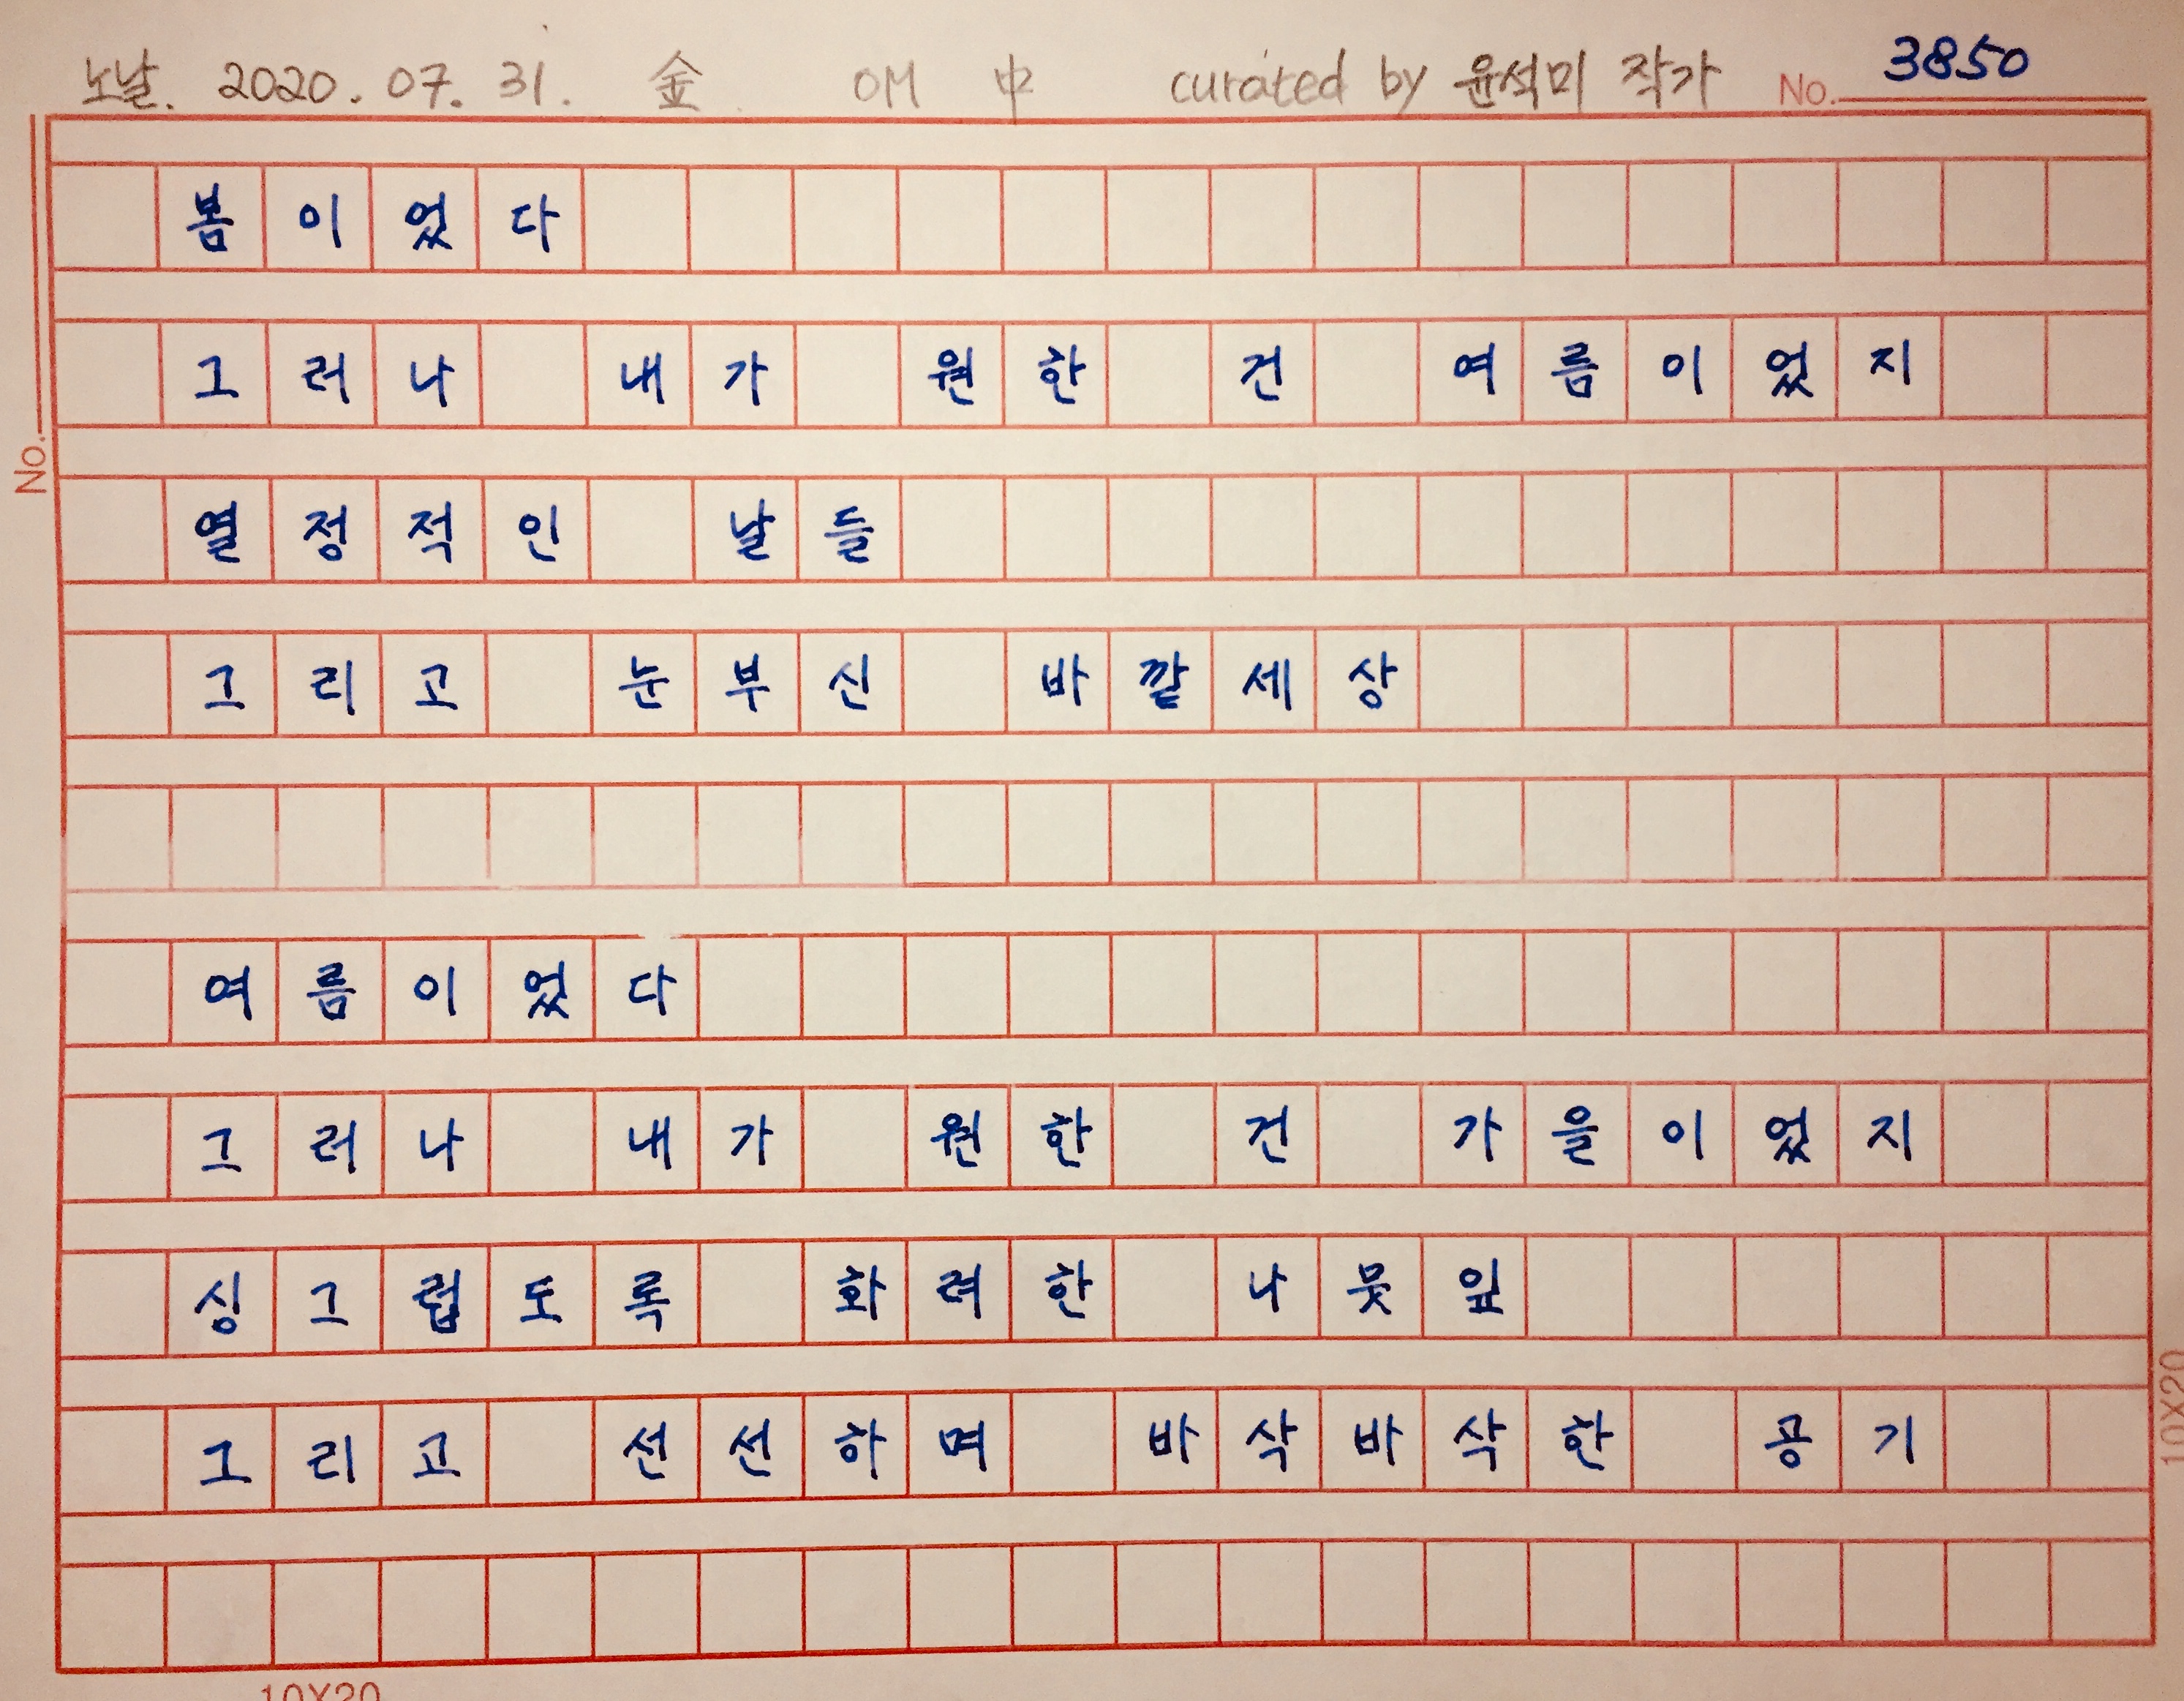 노날. 2020. 07. 31. 金. OM 中 curated by 윤석미 작가 No. 3850
봄이었다
그러나 내가 원한 건 여름이었지
No.
열정적인 날들
그리고 눈부신 바깥세상
여름이었다
그러나 내가 원한 건 가을이었지
싱그럽도록 화려한 나뭇잎
그리고 선선하며 바삭바삭한 공기
10X20
10X20